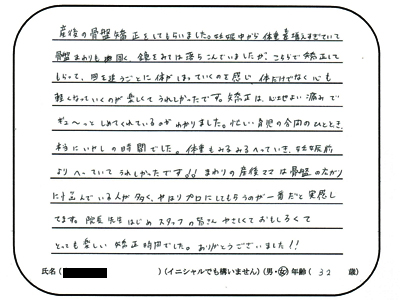 産後の骨盤矯正をしてもらいました。妊娠中から体重着増えすぎていて
骨盤まわりも固く、鏡をみては落ちこんでいましたが、こちらで矯正して
もらって、回を追うごとに体がしまっていくのを感じ 体だけでなく心も
軽くなっていくのが楽しくてうれしかったです。矯正は、心地よい痛みで
ギュ〜っとしめてくれているのがわかりました。忙しい育児の合間のひととき、
本当にいやしの時間でした。体重もみるみるへっていき、妊娠前
よりへっていてうれしかったです!! まわりの産後ママは骨盤の広がり
に悩んでいる人が多く、やはりプロにしてもらうのが一番だと実感し
てます。院長先生はじめスタッフの皆さんやさしくておもしろくて
とっても楽しい矯正時間でした。ありがとうございました!!
氏名( )(イニシャルでも構いません)(男・女)年齢( 32 歳)